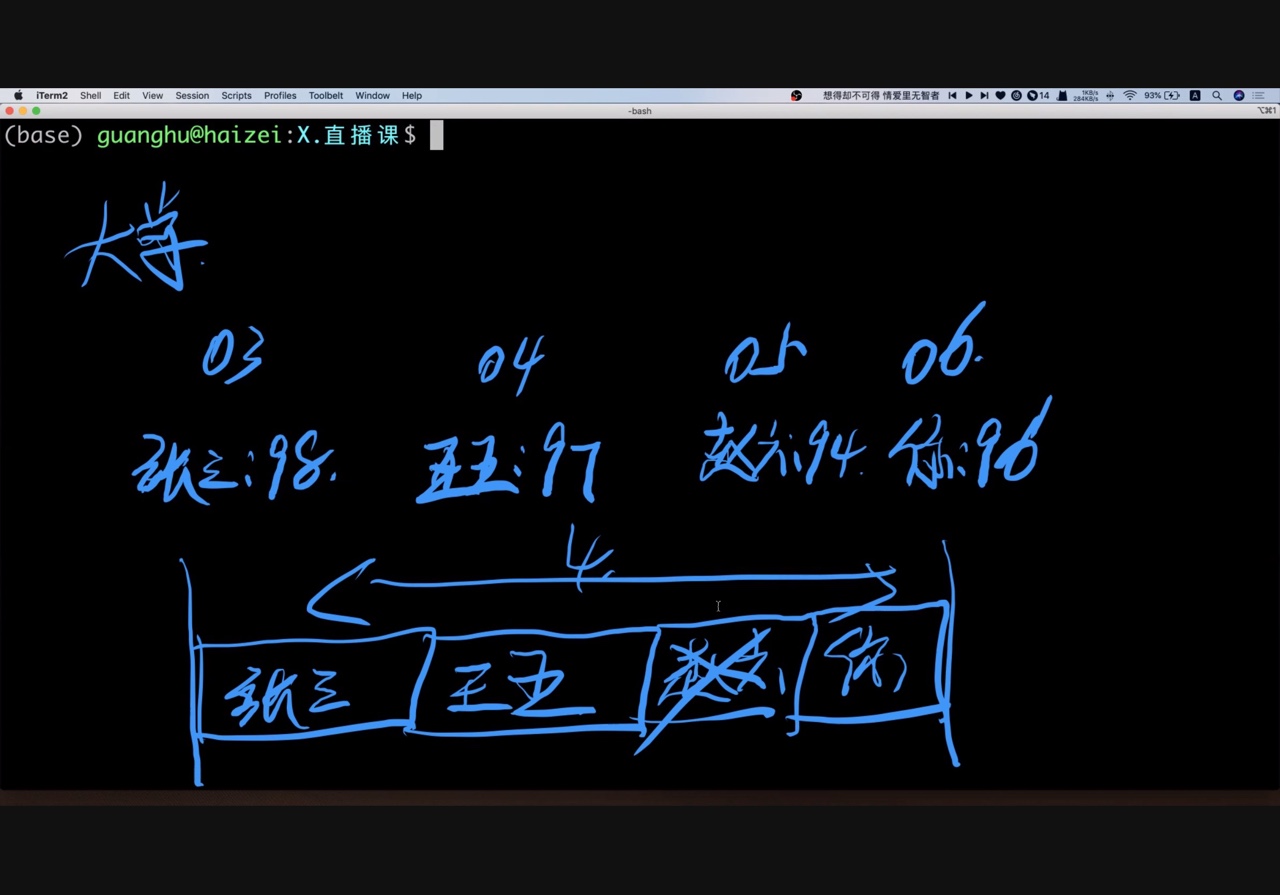 iTerm2 Shell Edit View Session Scripts Profiles Toolbelt Window Help 想得却不可得 情爱里无智者 14 1KB/s 284KB/s 93% A
-bash ⌥⌘1
(base) guanghu@haizei:X.直播课$
大学.
03 04 05 06.
张三:98. 王五:97 赵六:94. 你:96
4.
张三 王五 赵六 你